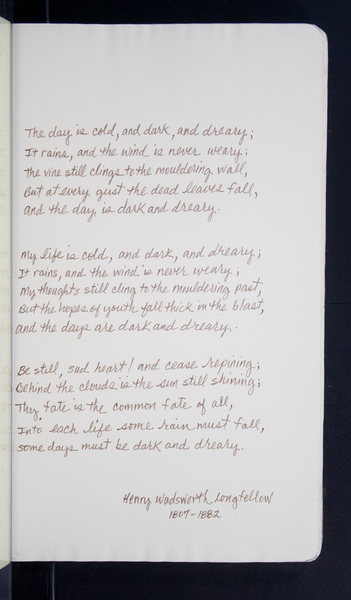 The day is cold, and dark, and dreary;
It rains, and the wind is never weary;
The vine still clings to the mouldering wall,
But at every gust the dead leaves fall,
and the day is dark and dreary.
My life is cold, and dark, and dreary;
It rains, and the wind is never weary;
My thoughts still cling to the mouldering past,
But the hopes of youth fall thick in the blast,
and the days are dark and dreary.
Be still, sad heart! and cease repining;
Behind the clouds is the sun still shining;
Thy fate is the common fate of all,
Into each life some rain must fall,
some days must be dark and dreary.
Henry Wadsworth Longfellow
1807-1882